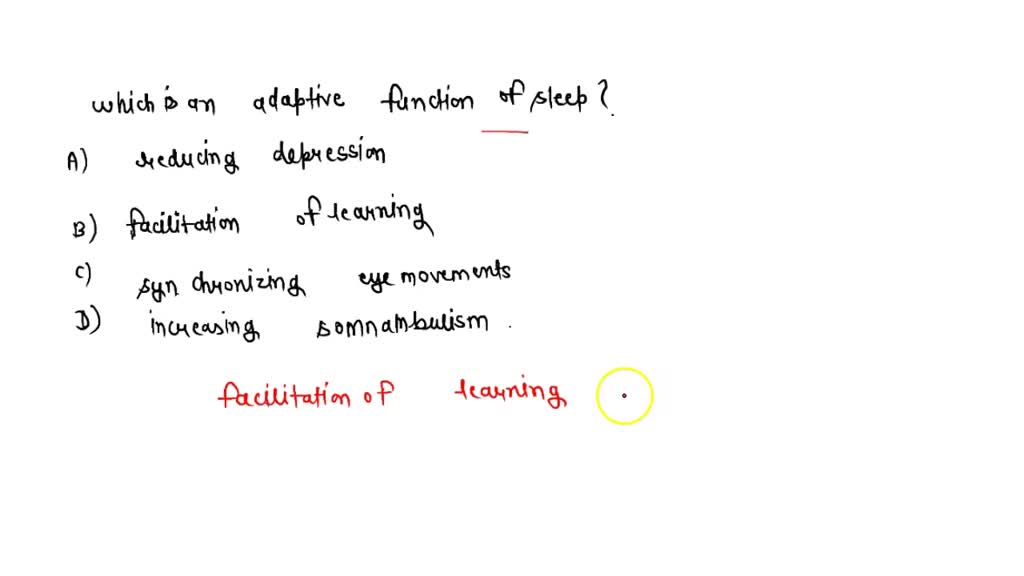 which is an adaptive function of sleep?
A) reducing depression
B) facilitation of learning
C) synchronizing eye movements
D) increasing somnambulism.
facilitation of learning